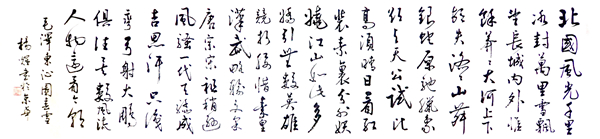 北國風光千里
冰封萬里雪飄
望長城內外惟
餘莽々大河上下
頓失滔々山舞
銀蛇原馳蠟象
欲與天公試比
高須晴日看紅
裝素裹分外妖
嬈江山如此多
嬌引無數英雄
競折腰惜秦皇
漢武略輸文采
唐宗宋祖稍遜
風騷一代天驕成
吉思汗只識
彎弓射大雕
俱往矣數風流
人物還看今朝
毛澤東沁園春雪